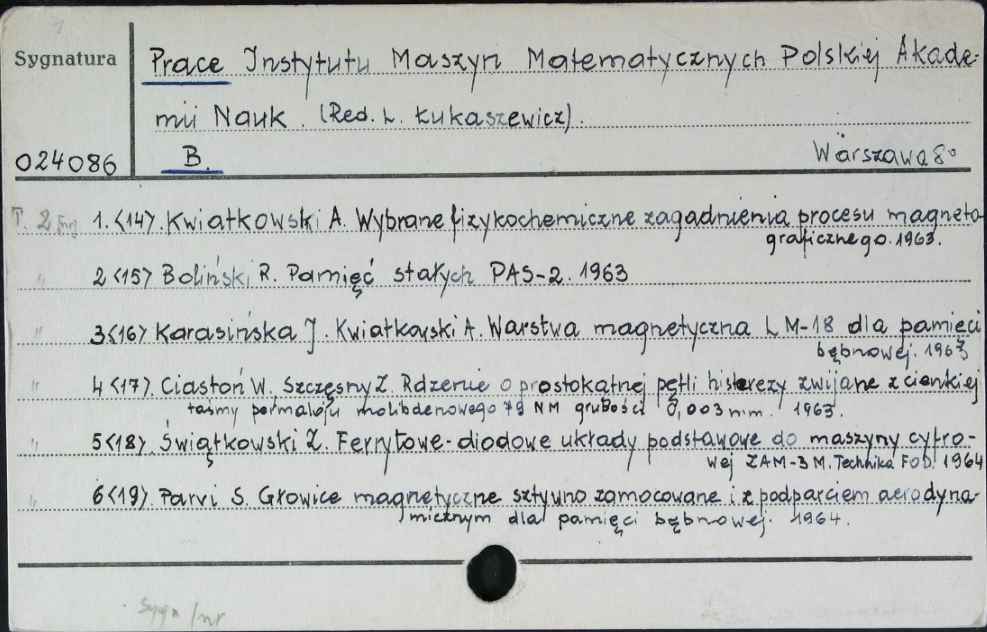 Sygnatura
Prace Instytutu Maszyn Matematycznych Polskiej Akade-
mii Nauk. (Red. L. Łukaszewicz).
024086
B.
Warszawa 8°
T. 2 1. <14>. Kwiatkowski A. Wybrane fizykochemiczne zagadnienia procesu magneto-
graficznego. 1963.
" 2 <15> Boliński R. Pamięć stałych PAS-2. 1963
" 3 <16> Karasińska J. Kwiatkowski A. Warstwa magnetyczna LM-18 dla pamięci
bębnowej. 1963
" 4 <17>. Ciastoń W. Szczęsny Z. Rdzenie o prostokątnej pętli histerezy zwijane z cienkiej
taśmy permaloju molibdenowego 79 NM grubości 0,003 mm. 1963.
" 5 <18>. Świątkowski Z. Ferrytowe-diodowe układy podstawowe do maszyny cyfro-
wej ZAM-3M. Technika FOD. 1964
" 6 <19>. Parvi S. Głowice magnetyczne sztywno zamocowane i z podparciem aerodyna-
micznym dla pamięci bębnowej. 1964.